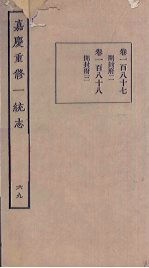 嘉慶重修一統志
六九
卷一百八十七
開封府二
卷一百八十八
開封府三